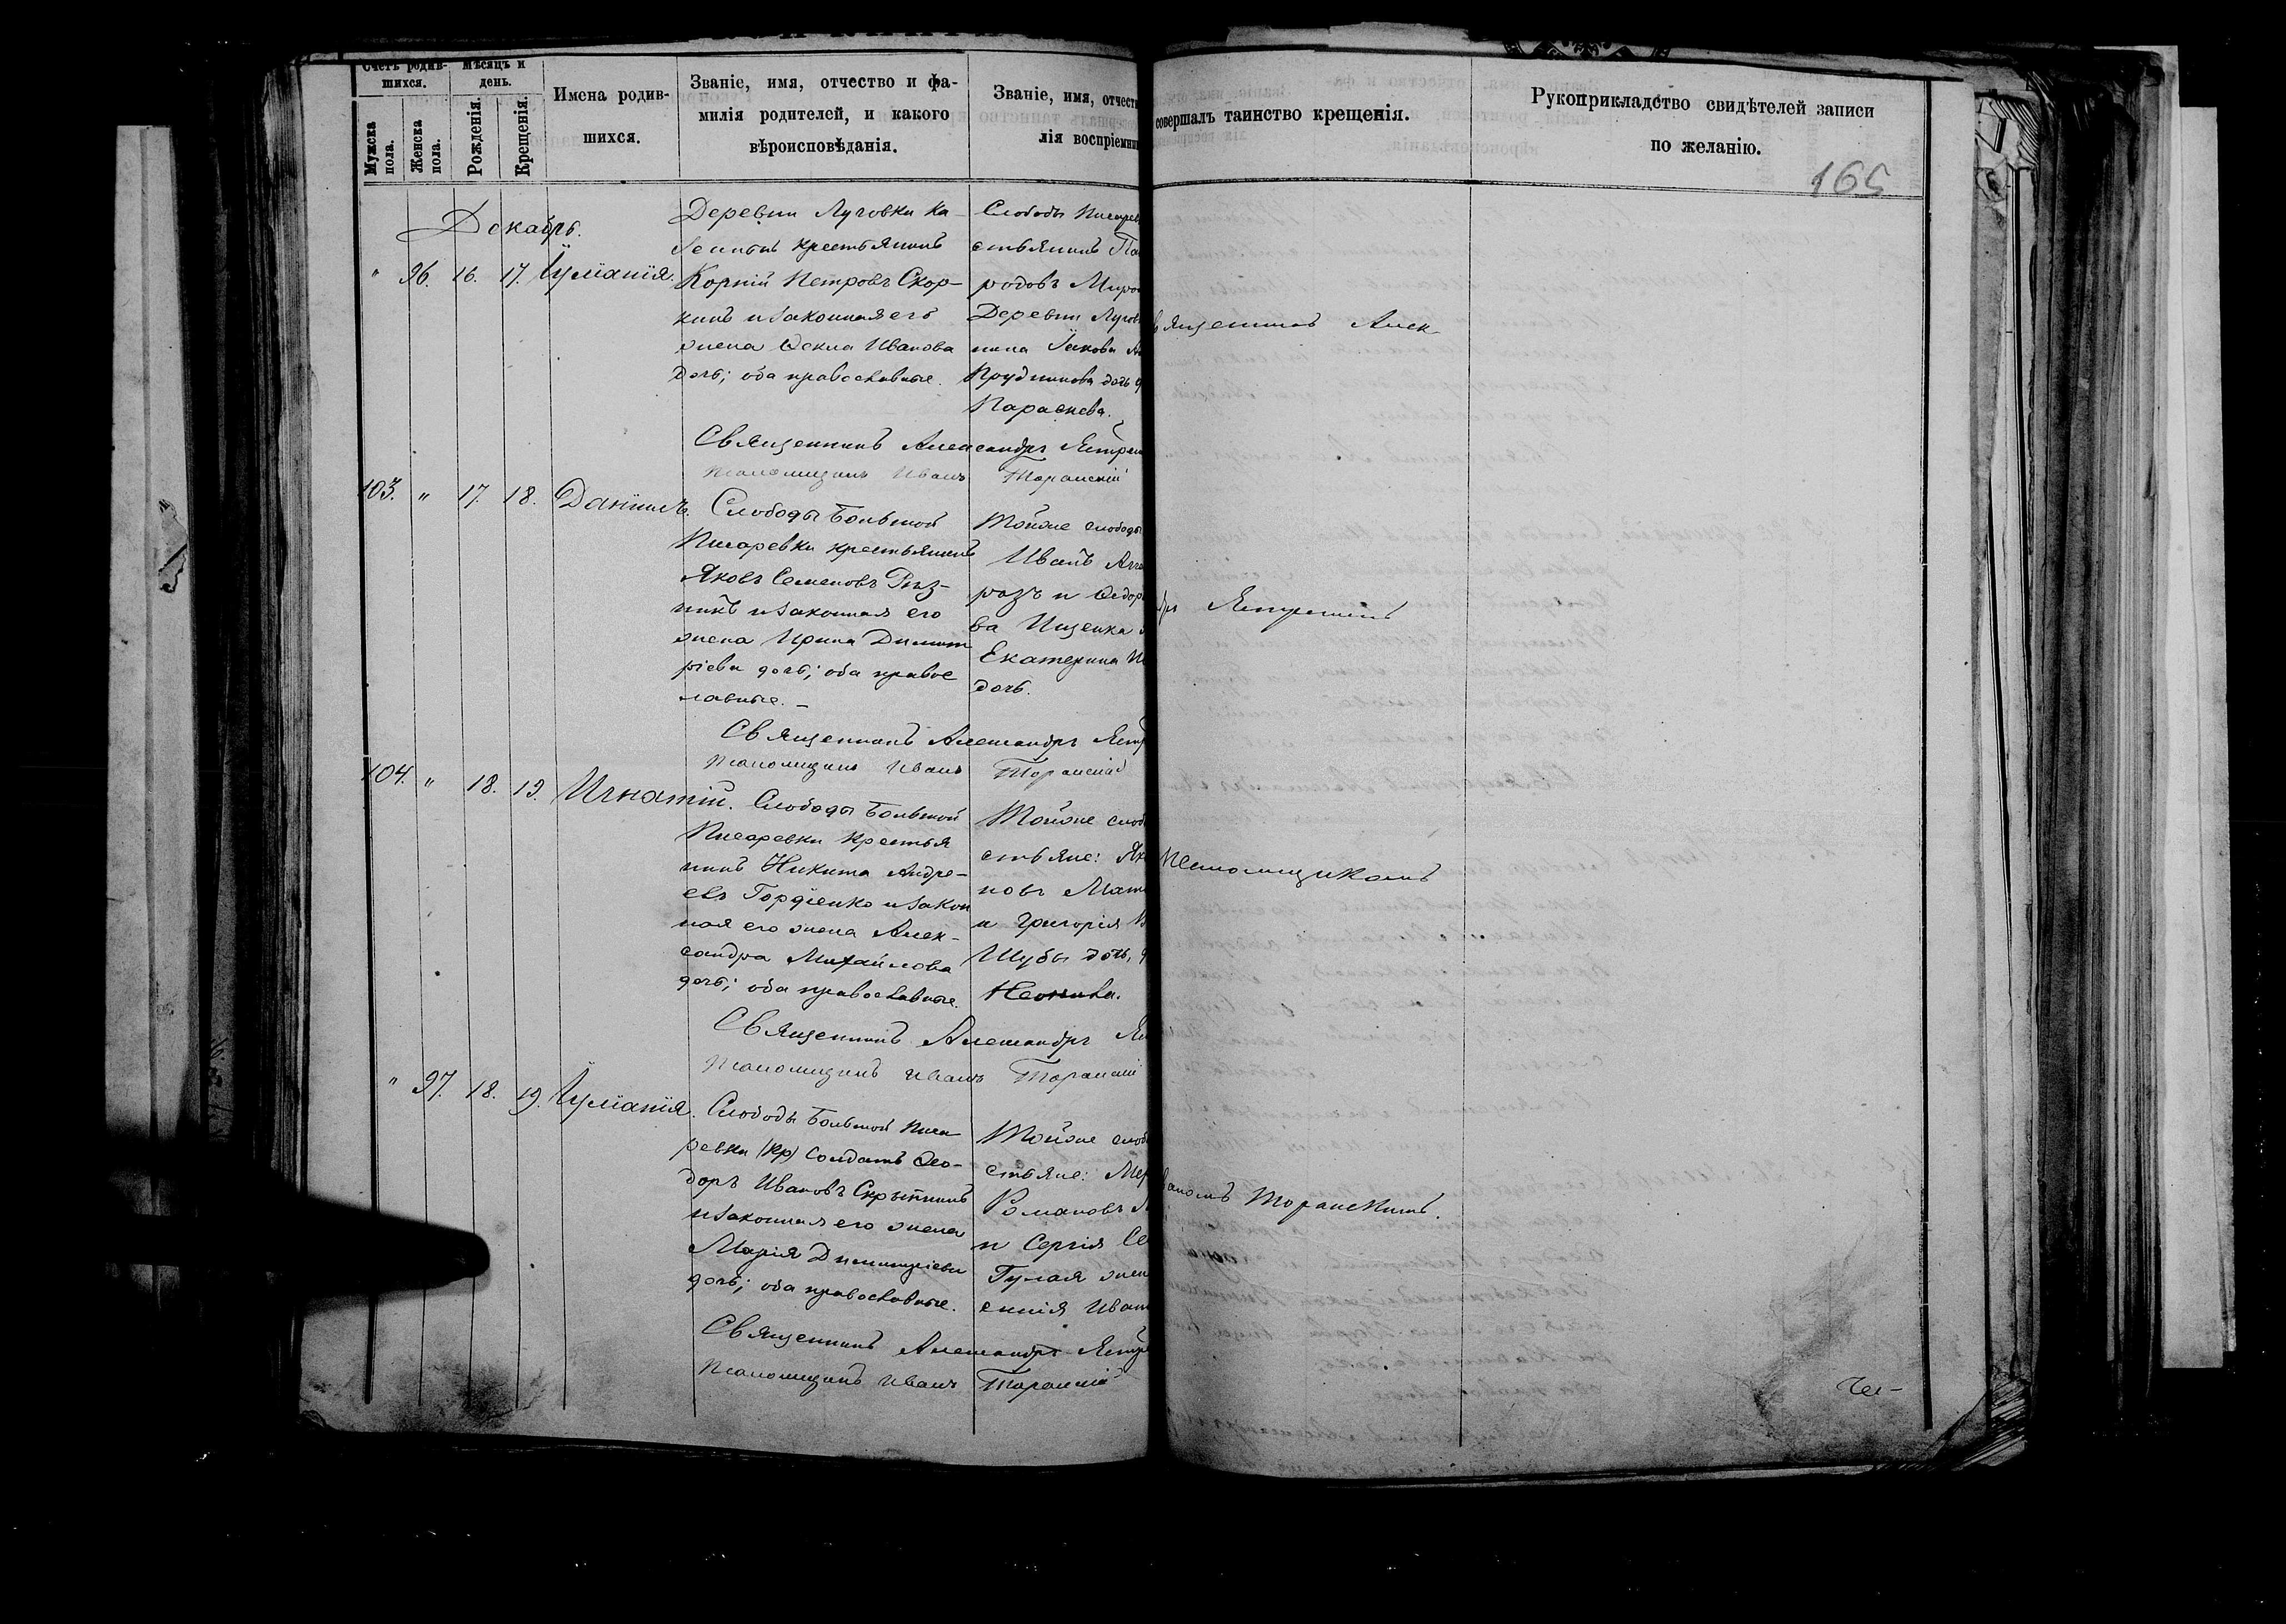 Счетъ родив-
шихся.
Мѣсяцъ и
день.
Мужска
пола.
Женска
пола.
Рожденія.
Крещенія.
Имена родив-
шихся.
Званіе, имя, отчество и фа-
милія родителей, и какого
вѣроисповѣданія.
Званіе, имя, отчест
лія воспріемни
совершалъ таинство крещенія.
Рукоприкладство свидѣтелей записи
по желанію.
165
Декабрь.
" 96. 16. 17. Іуліанія.
Деревни Луговки ка-
зенный крестьянинъ
Корній Петровъ Скор-
кинъ и законная его
жена Ѳекла Иванова
дочь; оба православные.
Слободы Писарев
стьянинъ
родовъ Миро
Деревни Лугов
нина Іакова
Прудникова дочь
Параскева.
Священникъ Александръ Ястрем
Псаломщикъ Иванъ Торанскій
103. " 17. 18. Даніилъ.
Слободы Большой
Писаревки крестьянинъ
Яковъ Семеновъ Рѣз-
никъ и законная его
жена Ирина Димит
ріева дочь; оба правос
лавные. –
Тойже слободы
Иванъ
розъ и Ѳедор
ва Ищенка
Екатерина
дочь.
Священникъ Александръ Ястр
Псаломщикъ Иванъ Торанскій
104. " 18. 19. Игнатій.
Слободы Большой
Писаревки крестья
нинъ Никита Андре-
евъ Гордіенко и закон
ная его жена Алек-
сандра Михайлова
дочь; оба православные.
Тойже слоб
стьяне: Як
новъ Мат
и Григорія
Шубы дочь,
Неонила.
Священникъ Александръ Яс
Псаломщикъ Иванъ Торанскій
" 97. 18. 19. Іуліанія.
Слободы Большой Писа
ревки (кр) Солдатъ Ѳео-
доръ Ивановъ Скрыпникъ
и законная его жена
Марія Димитріева
дочь; оба православные.
Тойже слоб
стьяне:
Романовъ
и Сергія Се
Гулая жен
сенія Иван
Священникъ Александръ Ястре
Псаломщикъ Иванъ Торанскій
вященникъ Алек-
дръ Ястремск
Псаломщикомъ
ваномъ Торанскимъ.